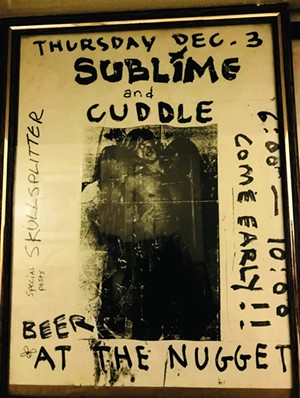 THURSDAY DEC. 3
SUBLIME
and
CUDDLE
special
guests
SKULLSPLITTER
6:00 — 10:00
COME EARLY!!
BEER
AT THE NUGGET